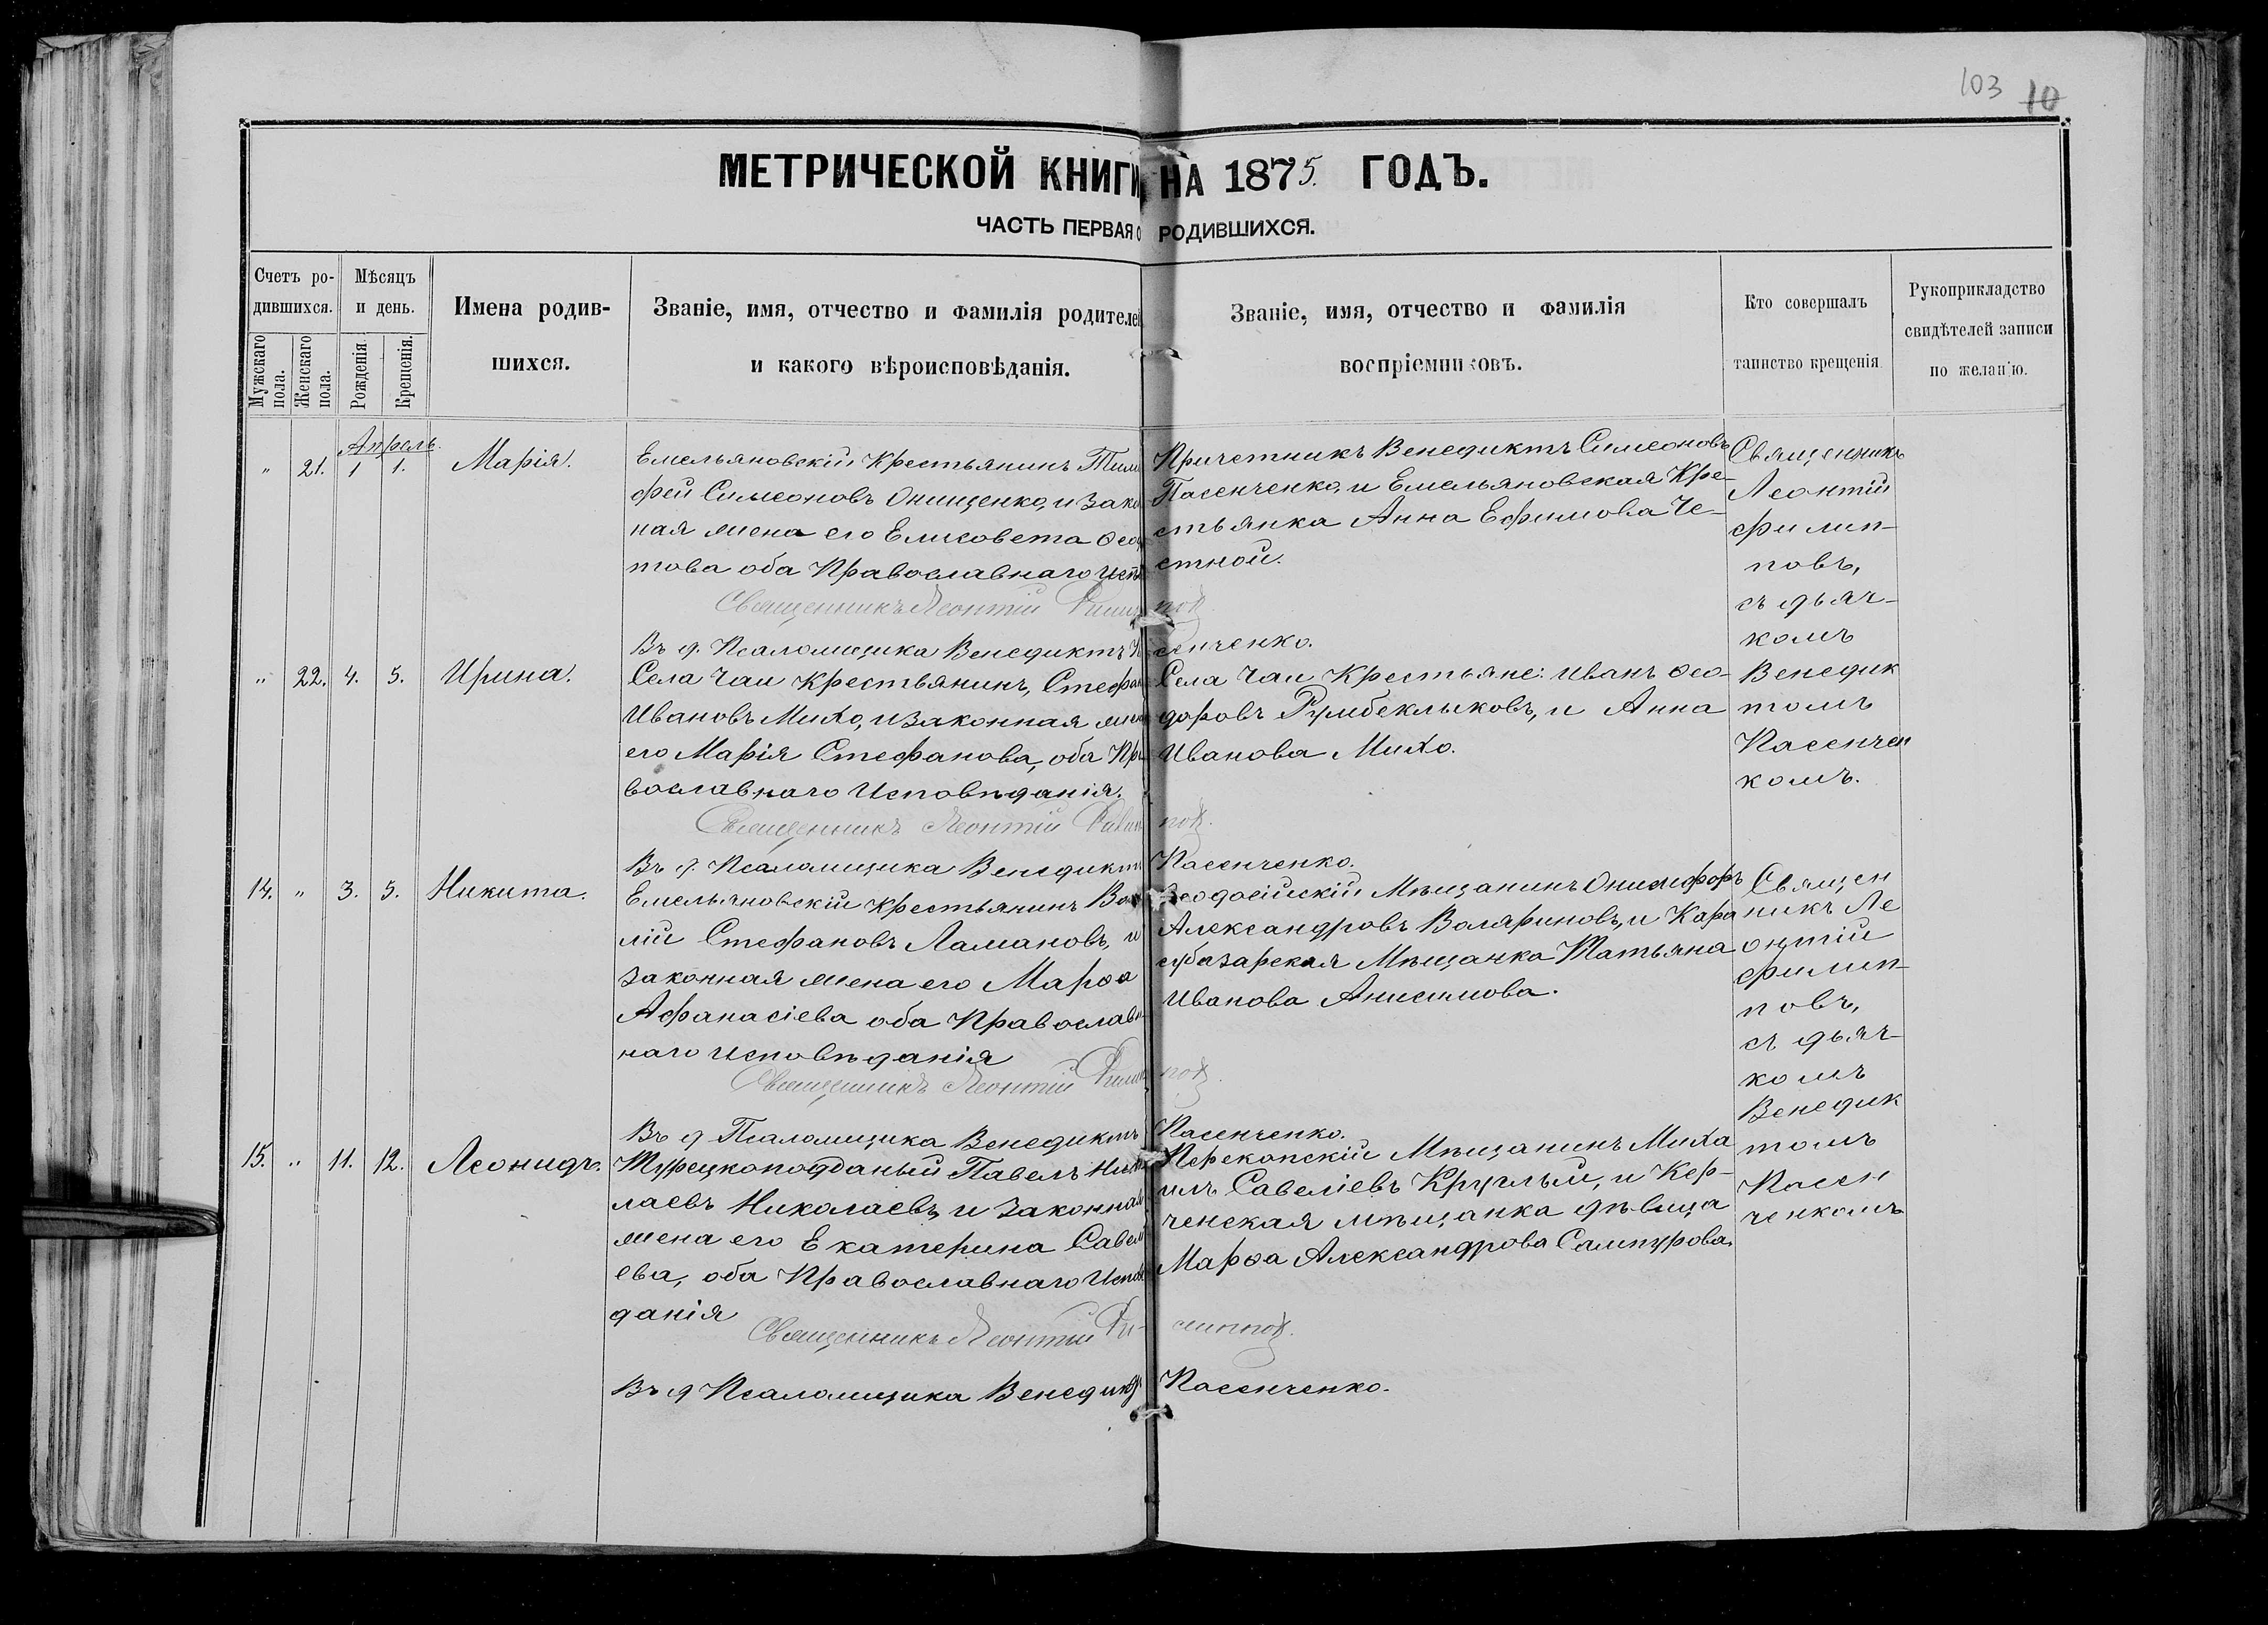 103 10
МЕТРИЧЕСКОЙ КНИГИ НА 1875. ГОДЪ.
ЧАСТЬ ПЕРВАЯ О РОДИВШИХСЯ.
Счетъ ро-
дившихся.
Мужскаго
пола.
Женскаго
пола.
Мѣсяцъ
и день.
Рожденія.
Крещенія.
Имена родив-
шихся.
Званіе, имя, отчество и фамилія родителей
и какого вѣроисповѣданія.
Званіе, имя, отчество и фамилія
воспріемниковъ.
Кто совершалъ
таинство крещенія
Рукоприкладство
свидѣтелей записи
по желанію.
Апрель.
" 21. 1 1. Марія.
Емельяновскій Крестьянинъ Тимо
фей Симеоновъ Онищенко, и Закон
ная жена его Елисовета Ѳеок
това оба Православнаго Исп
Священникъ Леонтій Филип
Въ д. Псаломщика Венедиктъ П
Причетникъ Венедиктъ Симеоновъ
Пасенченко, и Емельяновская Кре-
стьянка Анна Ефимова Че-
стной.
пов
сенченко.
Священникъ
Леонтій
Филип-
повъ,
съ дьяч-
комъ
Венедик
томъ
Пасенчен
комъ.
" 22. 4. 5. Ирина.
Села Чаи Крестьянинъ, Стефан
Ивановъ Михо, и Законная жена
его Марія Стефанова, оба Пра
вославнаго Исповѣданія.
Священникъ Леонтій Филип
Въ д. Псаломщика Венедиктъ
Села Чаи Крестьяне: Иванъ Ѳео-
доровъ Румбеклыковъ, и Анна
Иванова Михо.
пов.
Пасенченко.
14. " 3. 5. Никита.
Емельяновскій Крестьянинъ Васи
лій Стефановъ Ламановъ, и
Законная жена его Марѳа
Афанасіева оба Православ-
наго Исповѣданія
Священникъ Леонтій Филип
Въ д Псаломщика Венедиктъ
Ѳеодосійскій Мѣщанинъ Онисифоръ
Александровъ Воляриновъ, и Кара
субазарская Мѣщанка Татьяна
Иванова Анисимова.
пов.
Пасенченко.
Священ
никъ Ле
онтій
Филип-
повъ,
съ дьяч-
комъ
Венедик
томъ
Пасен
ченкомъ
15. " 11. 12. Леонидъ.
Турецкоподданый Павелъ Нико
лаевъ Николаевъ, и Законная
жена его Екатерина Савел
ева, оба Православнаго Исповѣ
данія
Священникъ Леонтій Фи-
Въ д Псаломщика Венедиктъ
Перекопскій Мѣщанинъ Миха
илъ Савеліевъ Круглый, и Кер-
ченская мѣщанка дѣвица
Марѳа Александрова Сампурова.
липпов.
Пасенченко.